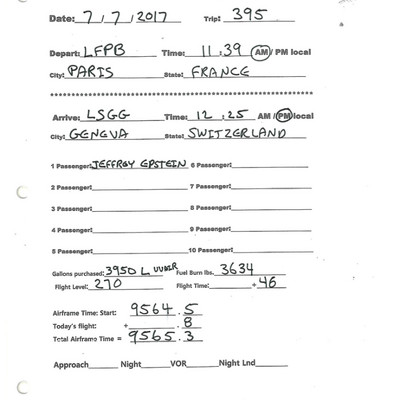 Date: 7 / 7 / 2017 Trip: 395
Depart: LFPB Time: 11 : 39 AM / PM local
City: PARIS State: FRANCE
************************************************************
Arrive: LSGG Time: 12 : 25 AM / PM local
City: GENEVA State: SWITZERLAND
1 Passenger: JEFFREY EPSTEIN 6 Passenger:
2 Passenger: 7 Passenger:
3 Passenger: 8 Passenger:
4 Passenger: 9 Passenger:
5 Passenger: 10 Passenger:
Gallons purchased: 3950 L Fuel Burn lbs. 3634
Flight Level: 270 Flight Time: + 46
Airframe Time: Start: 9564 . 5
Today's flight: + . 8
Total Airframe Time = 9565 . 3
Approach Night VOR Night Lnd